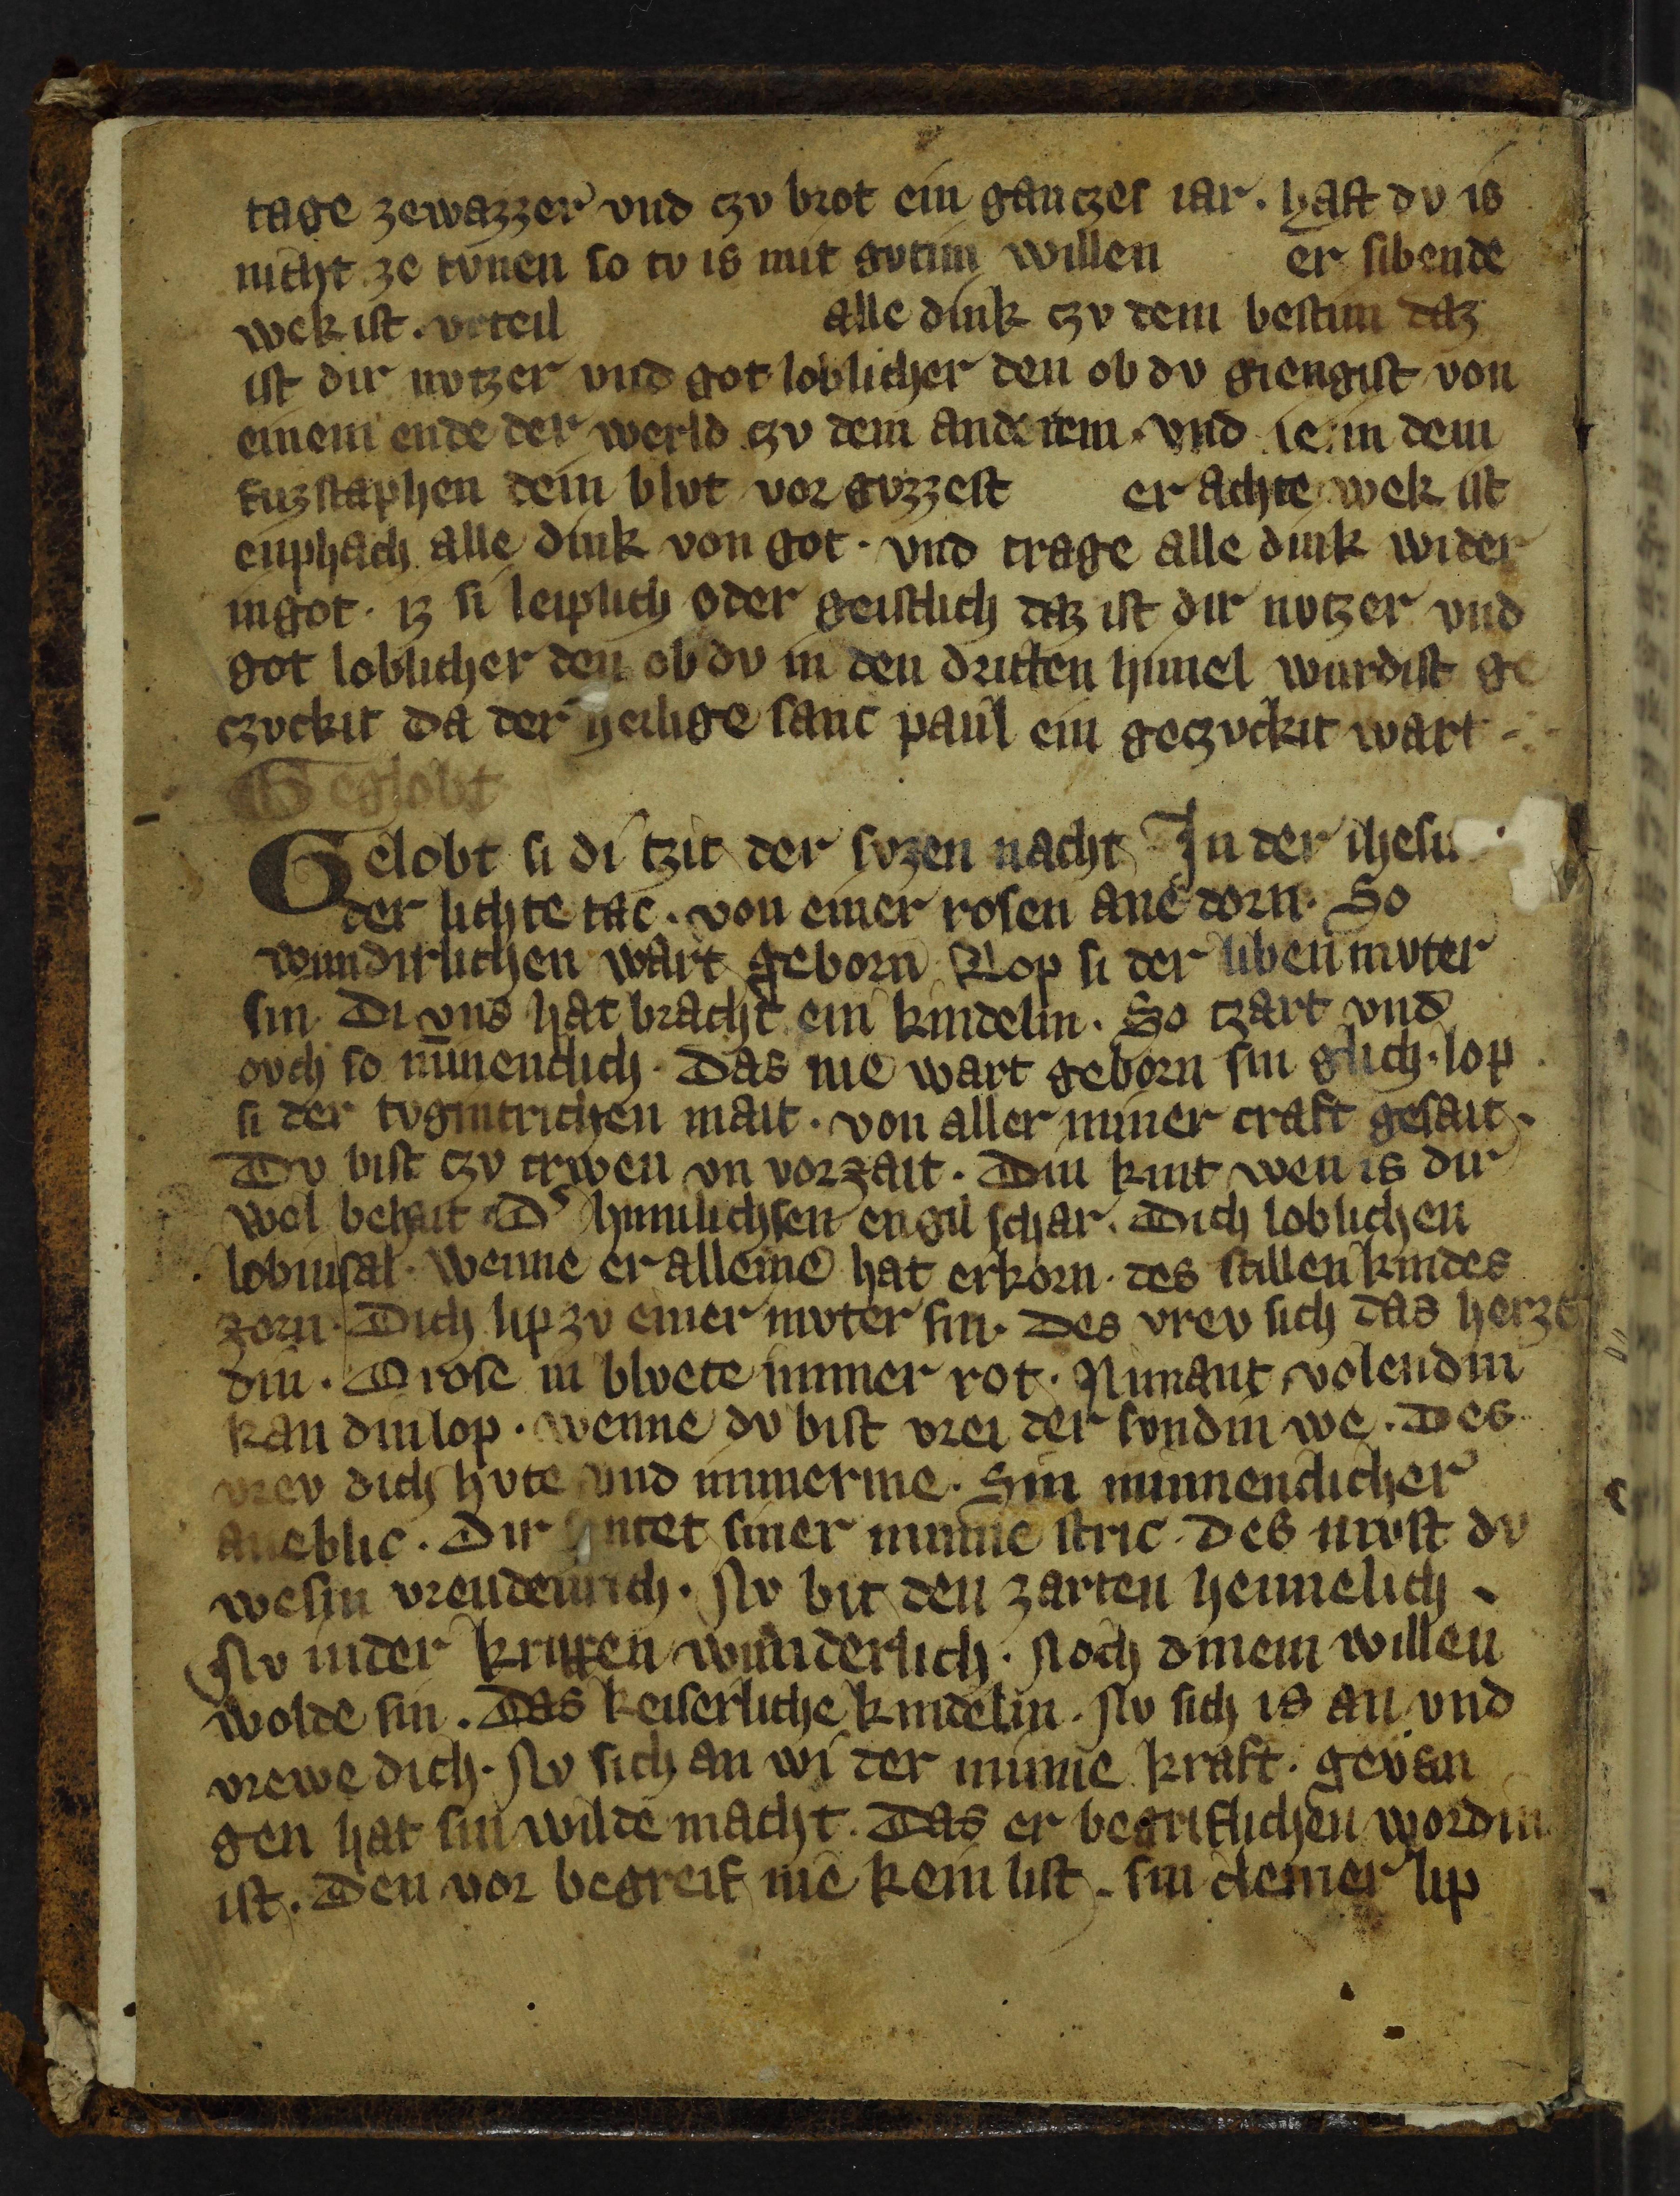 tage zewazzer vnd czv brot ein ganczes iar. hast dv is
nicht ze tvnen so tv is mit gvtim willen er sibende
wek ist. vrteil alle dink czv dem bestim daz
ist dir nvtzer vnd got loblicher den ob dv giengist von
einem ende der werld czv dem anderem. vnd ie in dem
fuzstaphen dein blvt vor gvzzest er achte wek ist
enphach alle dink von got. vnd trage alle dink wider
in got. iz si leiplich oder geistlich daz ist dir nvtzer vnd
got loblicher den ob dv in den dritten himel wurdist ge
czvckit da der heilige sanc paul ein geczvckit wart
Geglobt
Gelobt si di tzit der svzen nacht In der ihesu
der lichte tac. von einer rosen ane dorn. So
wundirlichen wart geborn Lop si der liben mvter
sin. Di vns hat bracht ein kindelin. So tzart vnd
ovch so minenclich. Das nie wart geborn sin glich. lop
si der tvgintrichen mait. von aller miner craft gesait.
Dv bist czv trwen vn vorzait. Din kint wen is dir
wol behait himilichsen engil schar. Dich loblichen
lobin sal. Wenne er alleine hat erkorn. des stillen kindes
zorn. Dich lip zv einer mvter sin. Des vrev sich das herze
din. O rose in blvete immer rot. Nimant volendin
kan din lop. wenne dv bist vrei der svndin we. Des
vrev dich hvte vnd immerme. Sin minnenclicher
aneblic. Dir sintet siner minne stric. Des mvst dv
wesin vreudenrich. Nv bit den zarten heimelich
Nv in der krippen wunderlich. Noch dinem willen
wolde sin. Das keiserliche kindelin. Nv sich is an vnd
vrewe dich. Nv sich an wi der minne kraft. gevan
gen hat sin wilde macht. Das er begriflichen wordin
ist. Den vor begreif nie kein list. sin cleiner lip